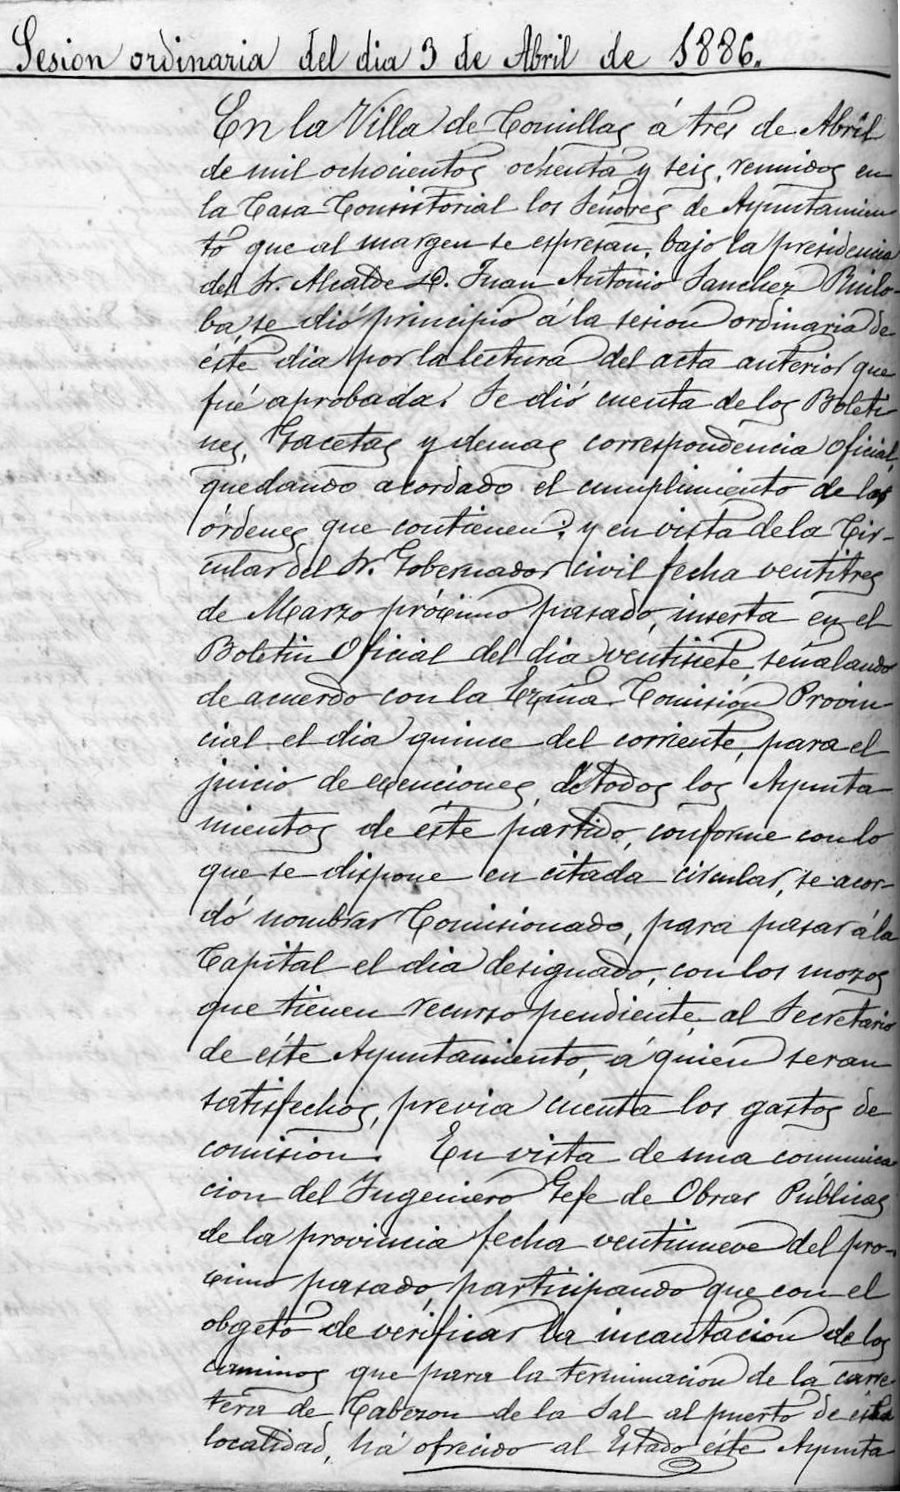 Sesion ordinaria del dia 3 de Abril de 1886.
En la Villa de Comillas á tres de Abril
de mil ochocientos ochenta y seis, reunidos en
la Casa Consistorial los Señores de Ayuntamien
to que al margen se espresan, bajo la presidencia
del Sr. Alcalde D. Juan Antonio Sanchez Ruilo-
ba, se dió principio á la sesion ordinaria de
éste dia por la lectura del acta anterior que
fué aprobada. Se dió cuenta de los Boleti
nes, Gacetas y demas correspondencia oficial,
quedando acordado el cumplimiento de las
órdenes que contienen: y en vista de la Cir-
cular del Sr. Gobernador civil fecha ventitres
de Marzo próximo pasado, inserta en el
Boletin Oficial del dia ventisiete, señalando
de acuerdo con la Exma. Comision Provin-
cial el dia quince del corriente, para el
juicio de exenciones, de todos los Ayunta-
mientos de éste partido, conforme con lo
que se dispone en citada circular, se acor-
dó nombrar Comisionado, para pasar á la
Capital el dia designado, con los mozos
que tienen recurso pendiente, al Secretario
de éste Ayuntamiento, á quien seran
satisfechos, previa cuenta los gastos de
comision. En vista de una comunica
cion del Ingeniero Gefe de Obras Públicas
de la provincia fecha ventinueve del pro-
ximo pasado, participando que con el
obgeto de verificar la incautacion de los
caminos que para la terminacion de la carre-
tera de Cabezon de la Sal al puerto de esta
localidad, há ofrecido al Estado éste Ayunta